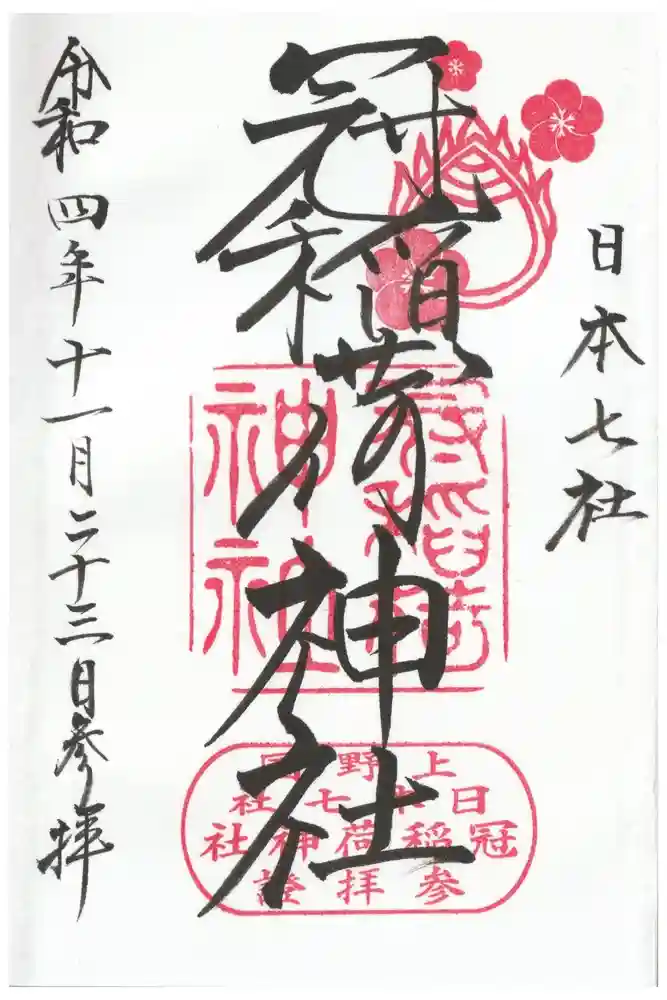 日本七社
冠稲荷神社
冠稲荷
神社
上野国
日本七社
冠稲荷神社
参拝證
令和四年十一月二十三日参拝